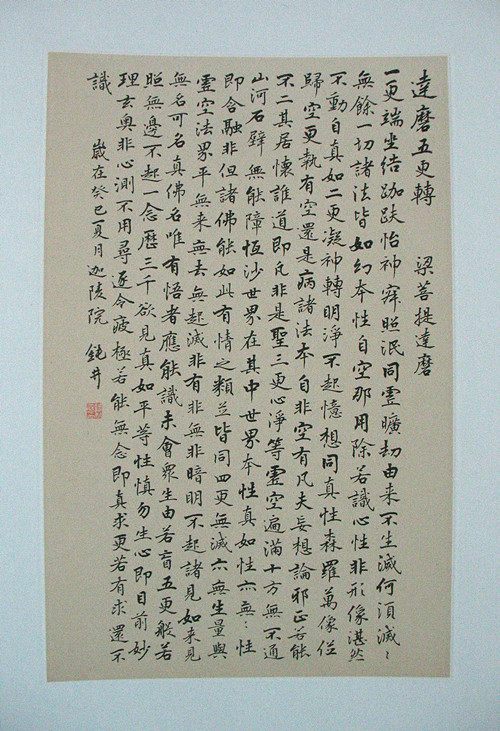 達磨五更轉 梁菩提達磨
一更端坐結跏趺怡神寂照泯同虛曠劫由來不生滅何須滅〻
無餘一切諸法皆如幻本性自空那用除若識心性非形像湛然
不動自真如二更凝神轉明淨不起憶想同真性森羅萬像位
歸空更執有空還是病諸法本自非空有凡夫妄想論邪正若能
不二其居懷誰道即凡非是聖三更心淨等虛空遍滿十方無不通
山河石壁無能障恆沙世界在其中世界本性真如性亦無〻性
即含融非但諸佛能如此有情之類並皆同四更無滅亦無生量與
虛空法界平無來無去無起滅非有非無非暗明不起諸見如來見
無名可名真佛名唯有悟者應能識未會眾生由若盲五更般若
照無邊不起一念歷三千欲見真如平等性慎勿生心即目前妙
理玄奧非心測不用尋逐令疲極若能無念即真求更若有求還不
識 歲在癸巳夏月迦陵院 鈍井